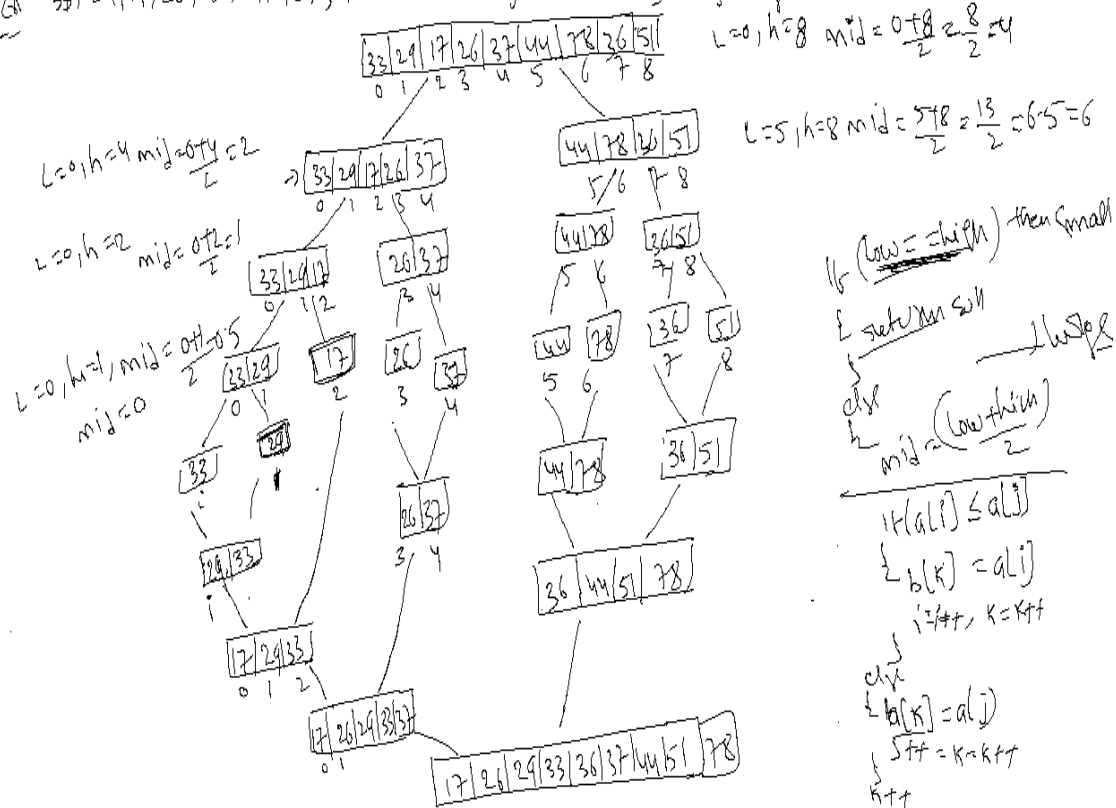 33|29|17|26|37|44|78|36|51
0 1 2 3 4 5 6 7 8
L=0, h=8 mid = 0+8/2 = 8/2 = 4
L=0, h=4 mid=0+4/2=2
33|29|17|26|37
0 1 2 3 4
44|78|36|51
5 6 7 8
L=5, h=8 mid = 5+8/2 = 13/2 = 6.5=6
L=0, h=2 mid = 0+2/2=1
33|29|17
0 1 2
26|37
3 4
44|78
5 6
36|51
7 8
L=0, h=1, mid = 0+1/2=0.5
mid=0
33|29
0 1
17
2
26
3
37
4
44
5
78
6
36
7
51
8
33
i
29
29|33
i
26|37
3 4
44|78
36|51
17|29|33
0 1 2
36|44|51|78
17|26|29|33|37
0 1
17|26|29|33|36|37|44|51|78
if (low==high) then small
{ return
}
else
{
mid = (low+high)/2
if(a[i] ≤ a[j]
{ b[k] = a[i]
i=i++, k=k++
}
else
{ b[k] = a(j)
j++ = k=k++
}
k++